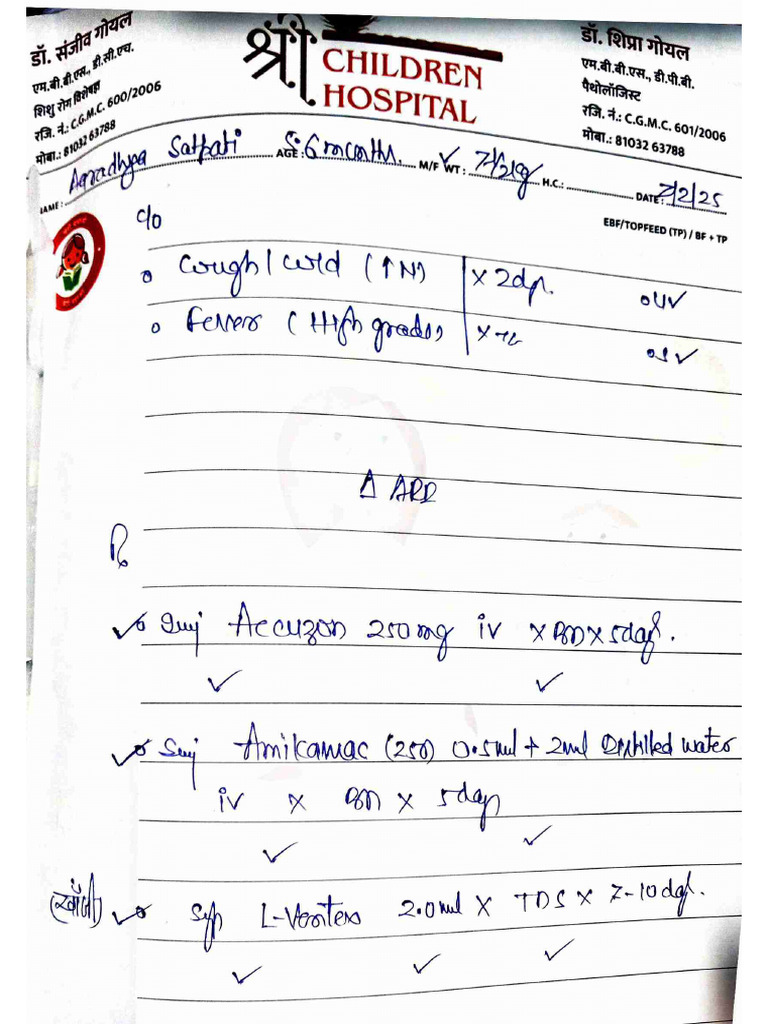 डॉ. संजीव गोयल
एम.बी.बी.एस., डी.सी.एच.
शिशु रोग विशेषज्ञ
रजि. नं.: C.G.M.C. 600/2006
मोबा.: 81032 63788
श्री CHILDREN HOSPITAL
डॉ. शिप्रा गोयल
एम.बी.बी.एस., डी.पी.बी.
पैथोलॉजिस्ट
रजि. नं.: C.G.M.C. 601/2006
मोबा.: 81032 63788
NAME: Aaradhya Satpati AGE: 5.6 months M/F WT: H.C.: DATE: 7/2/25
EBF/TOPFEED (TP) / BF + TP
c/o
Cough / Cold (↑N) x 2 day.
Fever (High grade)
Δ ARI
Rx
Inj Accuzon 250 mg iv x BD x 5 day.
Inj Amikamac (250) 0.5 ml + 2 ml Distilled water
iv x BD x 5 day
(खाँसी) Syp L-Ventex 2.0 ml x TDS x 7-10 day.